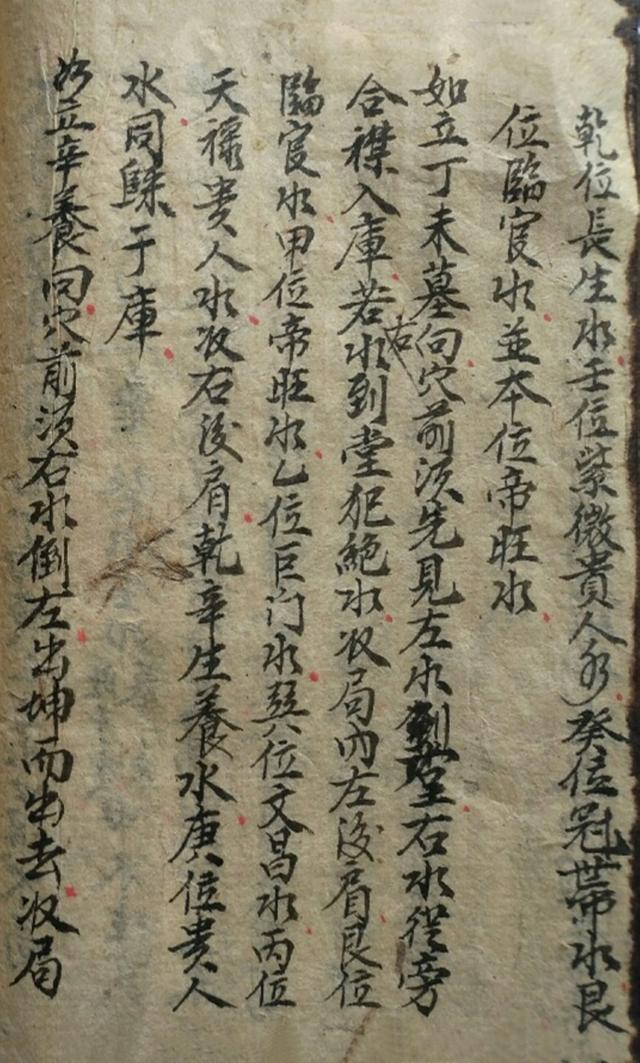 乾位長生水壬位紫微貴人水癸位冠帶水艮
位臨官水並本位帝旺水
如立丁未墓向穴前須先見左水到堂右水從旁
合襟入庫若右水到堂犯絕水收局內左後肩艮位
臨官水甲位帝旺水乙位巨门水巽位文昌水丙位
天祿貴人水收右後肩乾辛生養水庚位貴人
水同歸于庫
如立辛養向穴前須右水倒左出坤而出去收局